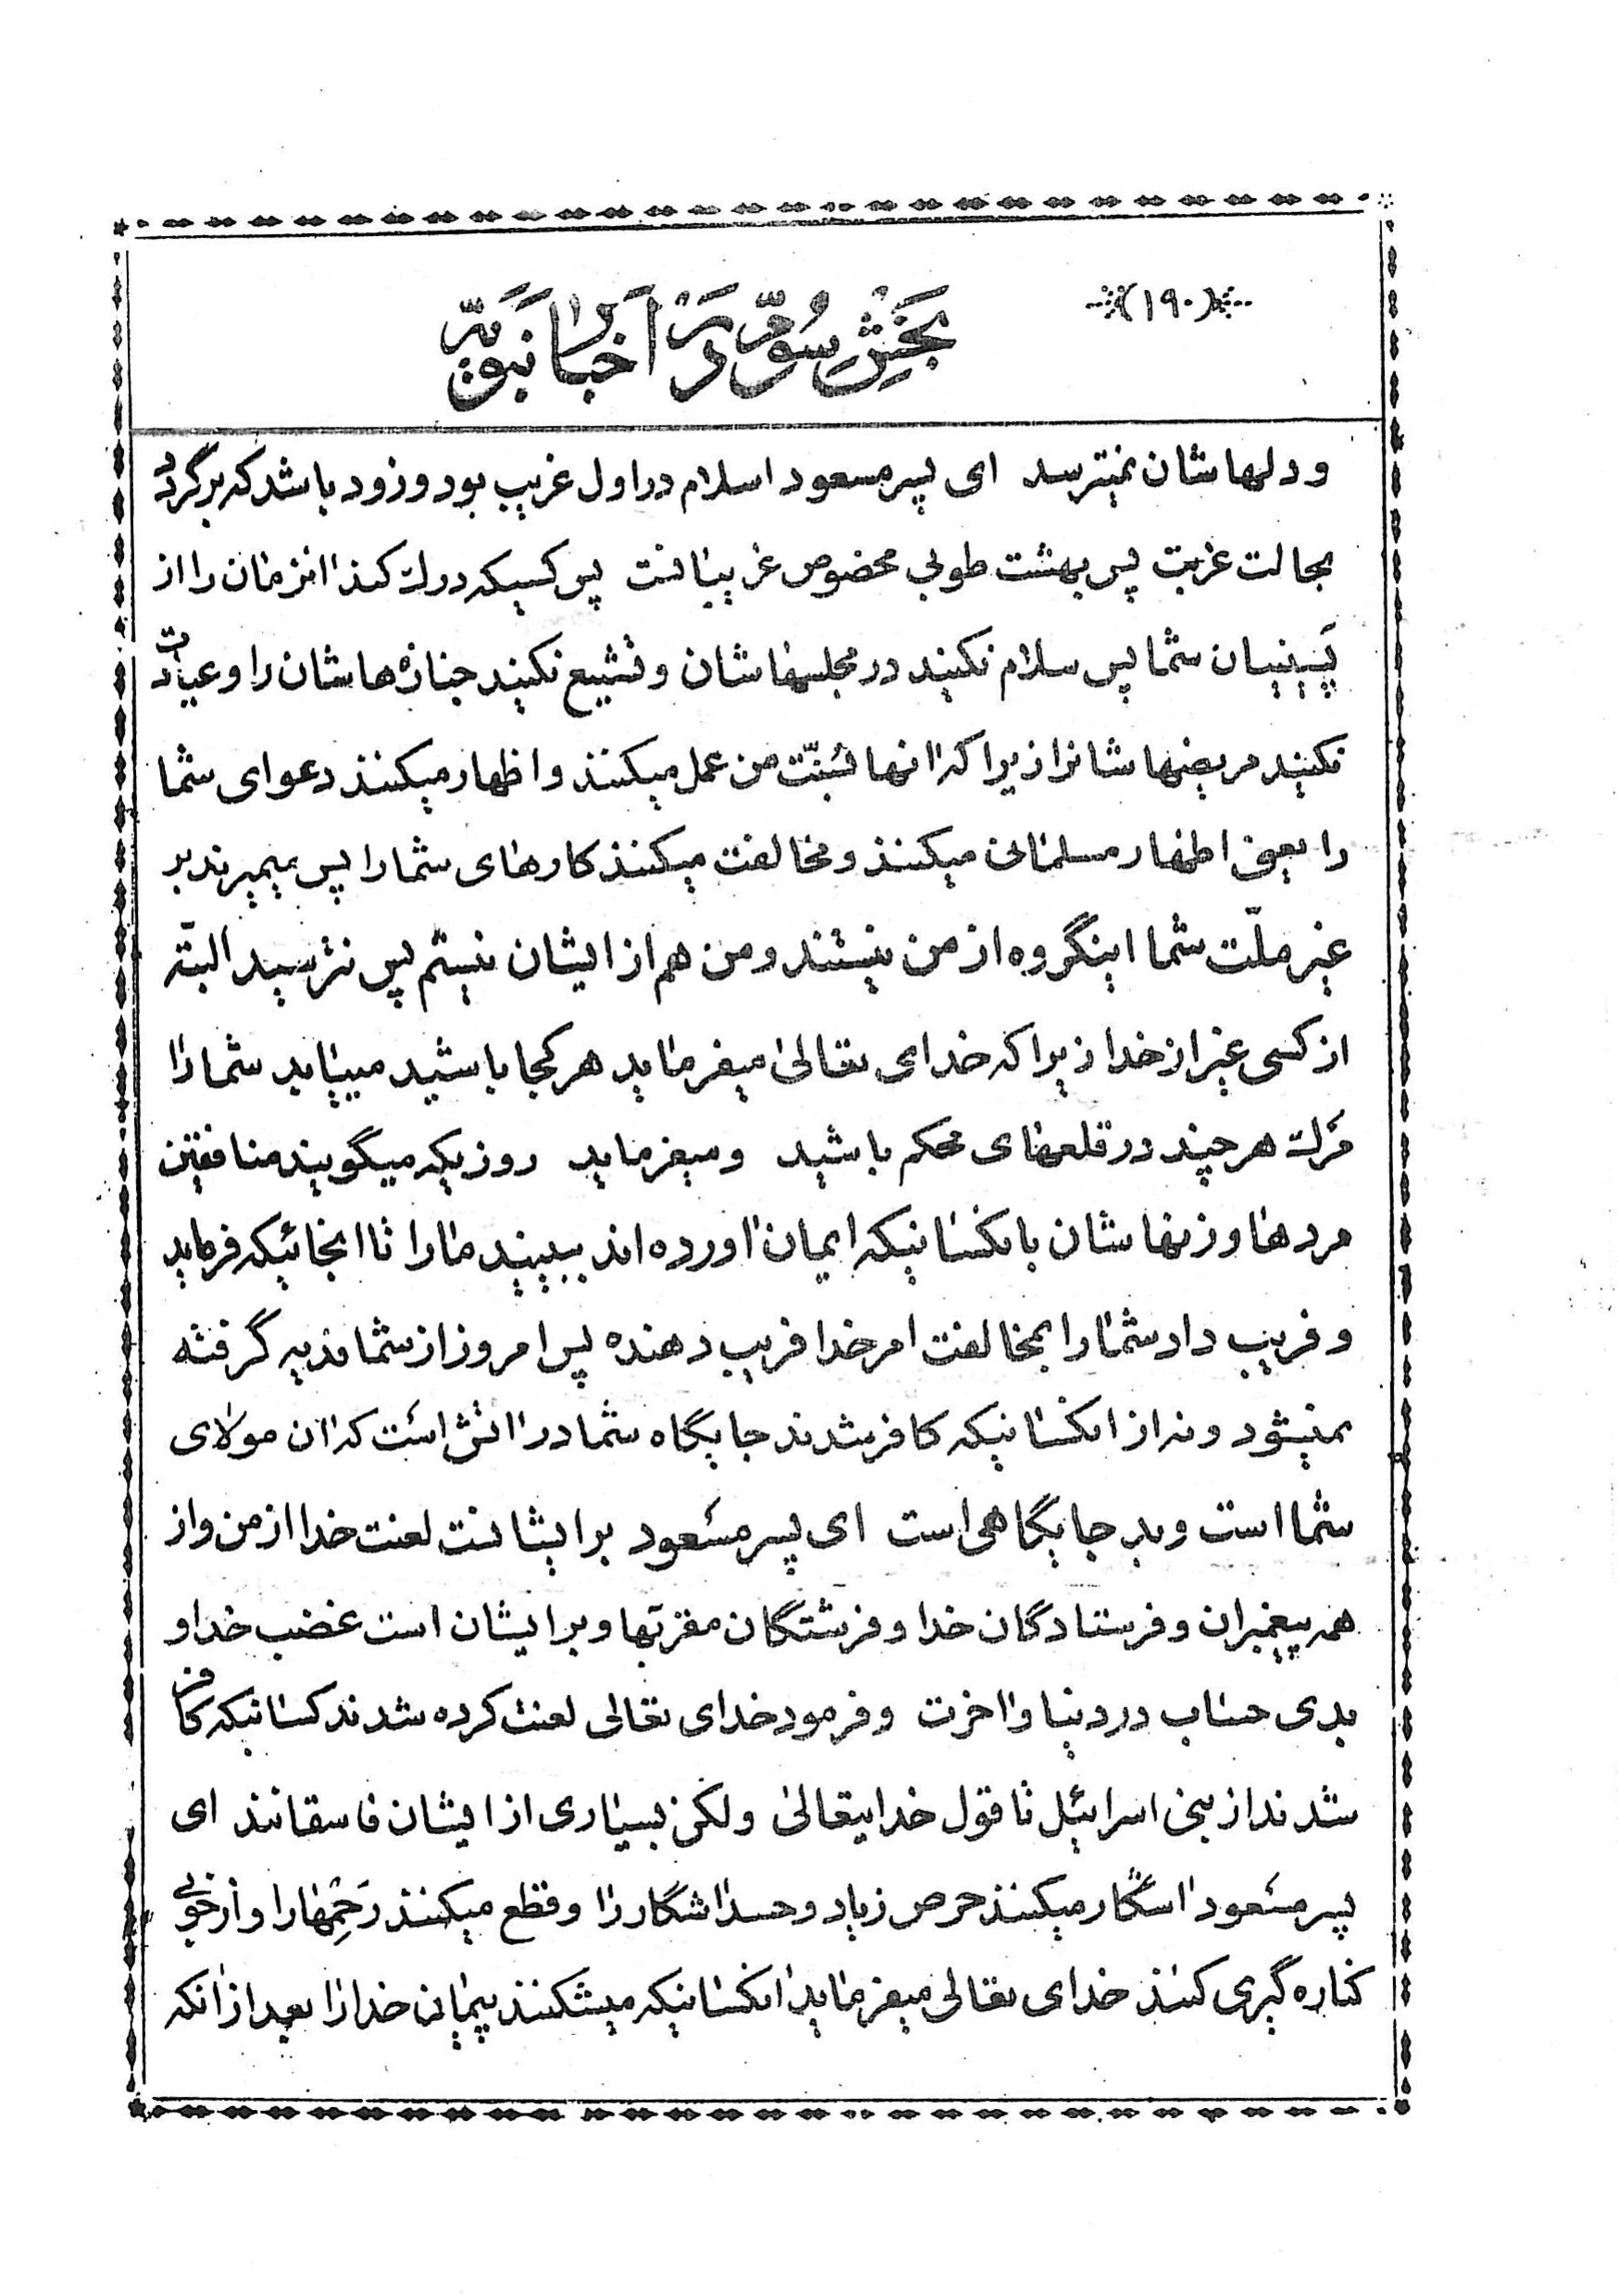 (۱۹۰)
بخش سوّم در اخبار نبویّه
و دلهاشان نمیترسد ای پسر مسعود اسلام در اول غریب بود و زود باشد که برگردد
بحالت غربت پس بهشت طوبی مخصوص غریبانست پس کسیکه درک کند انزمان را از
پسینیان شما پس سلام نکنید در مجلسهاشان و تشییع نکنید جنازه‌هاشان را و عیادت
نکنید مریضهاشانرا زیرا که انها بسُنّت من عمل میکنند و اظهار میکنند دعوای شما
را یعنی اظهار مسلمانی میکنند و مخالفت میکنند کارهای شما را پس میمیرند بر
غیر ملّت شما اینگروه از من نیستند و من هم از ایشان نیستم پس نترسید البتّه
از کسی غیر از خدا زیرا که خدای تعالی میفرماید هر کجا باشید مییابد شما را
مرک هر چند در قلعهای محکم باشید و میفرماید روزیکه میگویند منافقین
مردها و زنهاشان بانکسانیکه ایمان اورده‌اند ببینید ما را تا انجائیکه فرماید
و فریب داد شما را بمخالفت امر خدا فریب دهنده پس امروز از شما فدیه گرفته
نمیشود و نه از انکسانیکه کافر شدند جایگاه شما در اتش است که ان مولای
شما است و بد جایگاهی است ای پسر مسعود بر ایشانست لعنت خدا از من و از
همه پیغمبران و فرستادگان خدا و فرشتگان مقربها و بر ایشان است غضب خدا و
بدی حساب در دنیا و اخرت و فرمود خدای تعالی لعنت کرده شدند کسانیکه کافر
شدند از بنی اسرائیل تا قول خدایتعالی ولکن بسیاری از ایشان فاسقانند ای
پسر مسعود اشکار میکنند حرص زیاد و حسد اشکار را و قطع میکنند رَحِمها را و از خوبی
کناره گیری کنند خدای تعالی میفرماید انکسانیکه میشکنند پیمان خدا را بعد از انکه